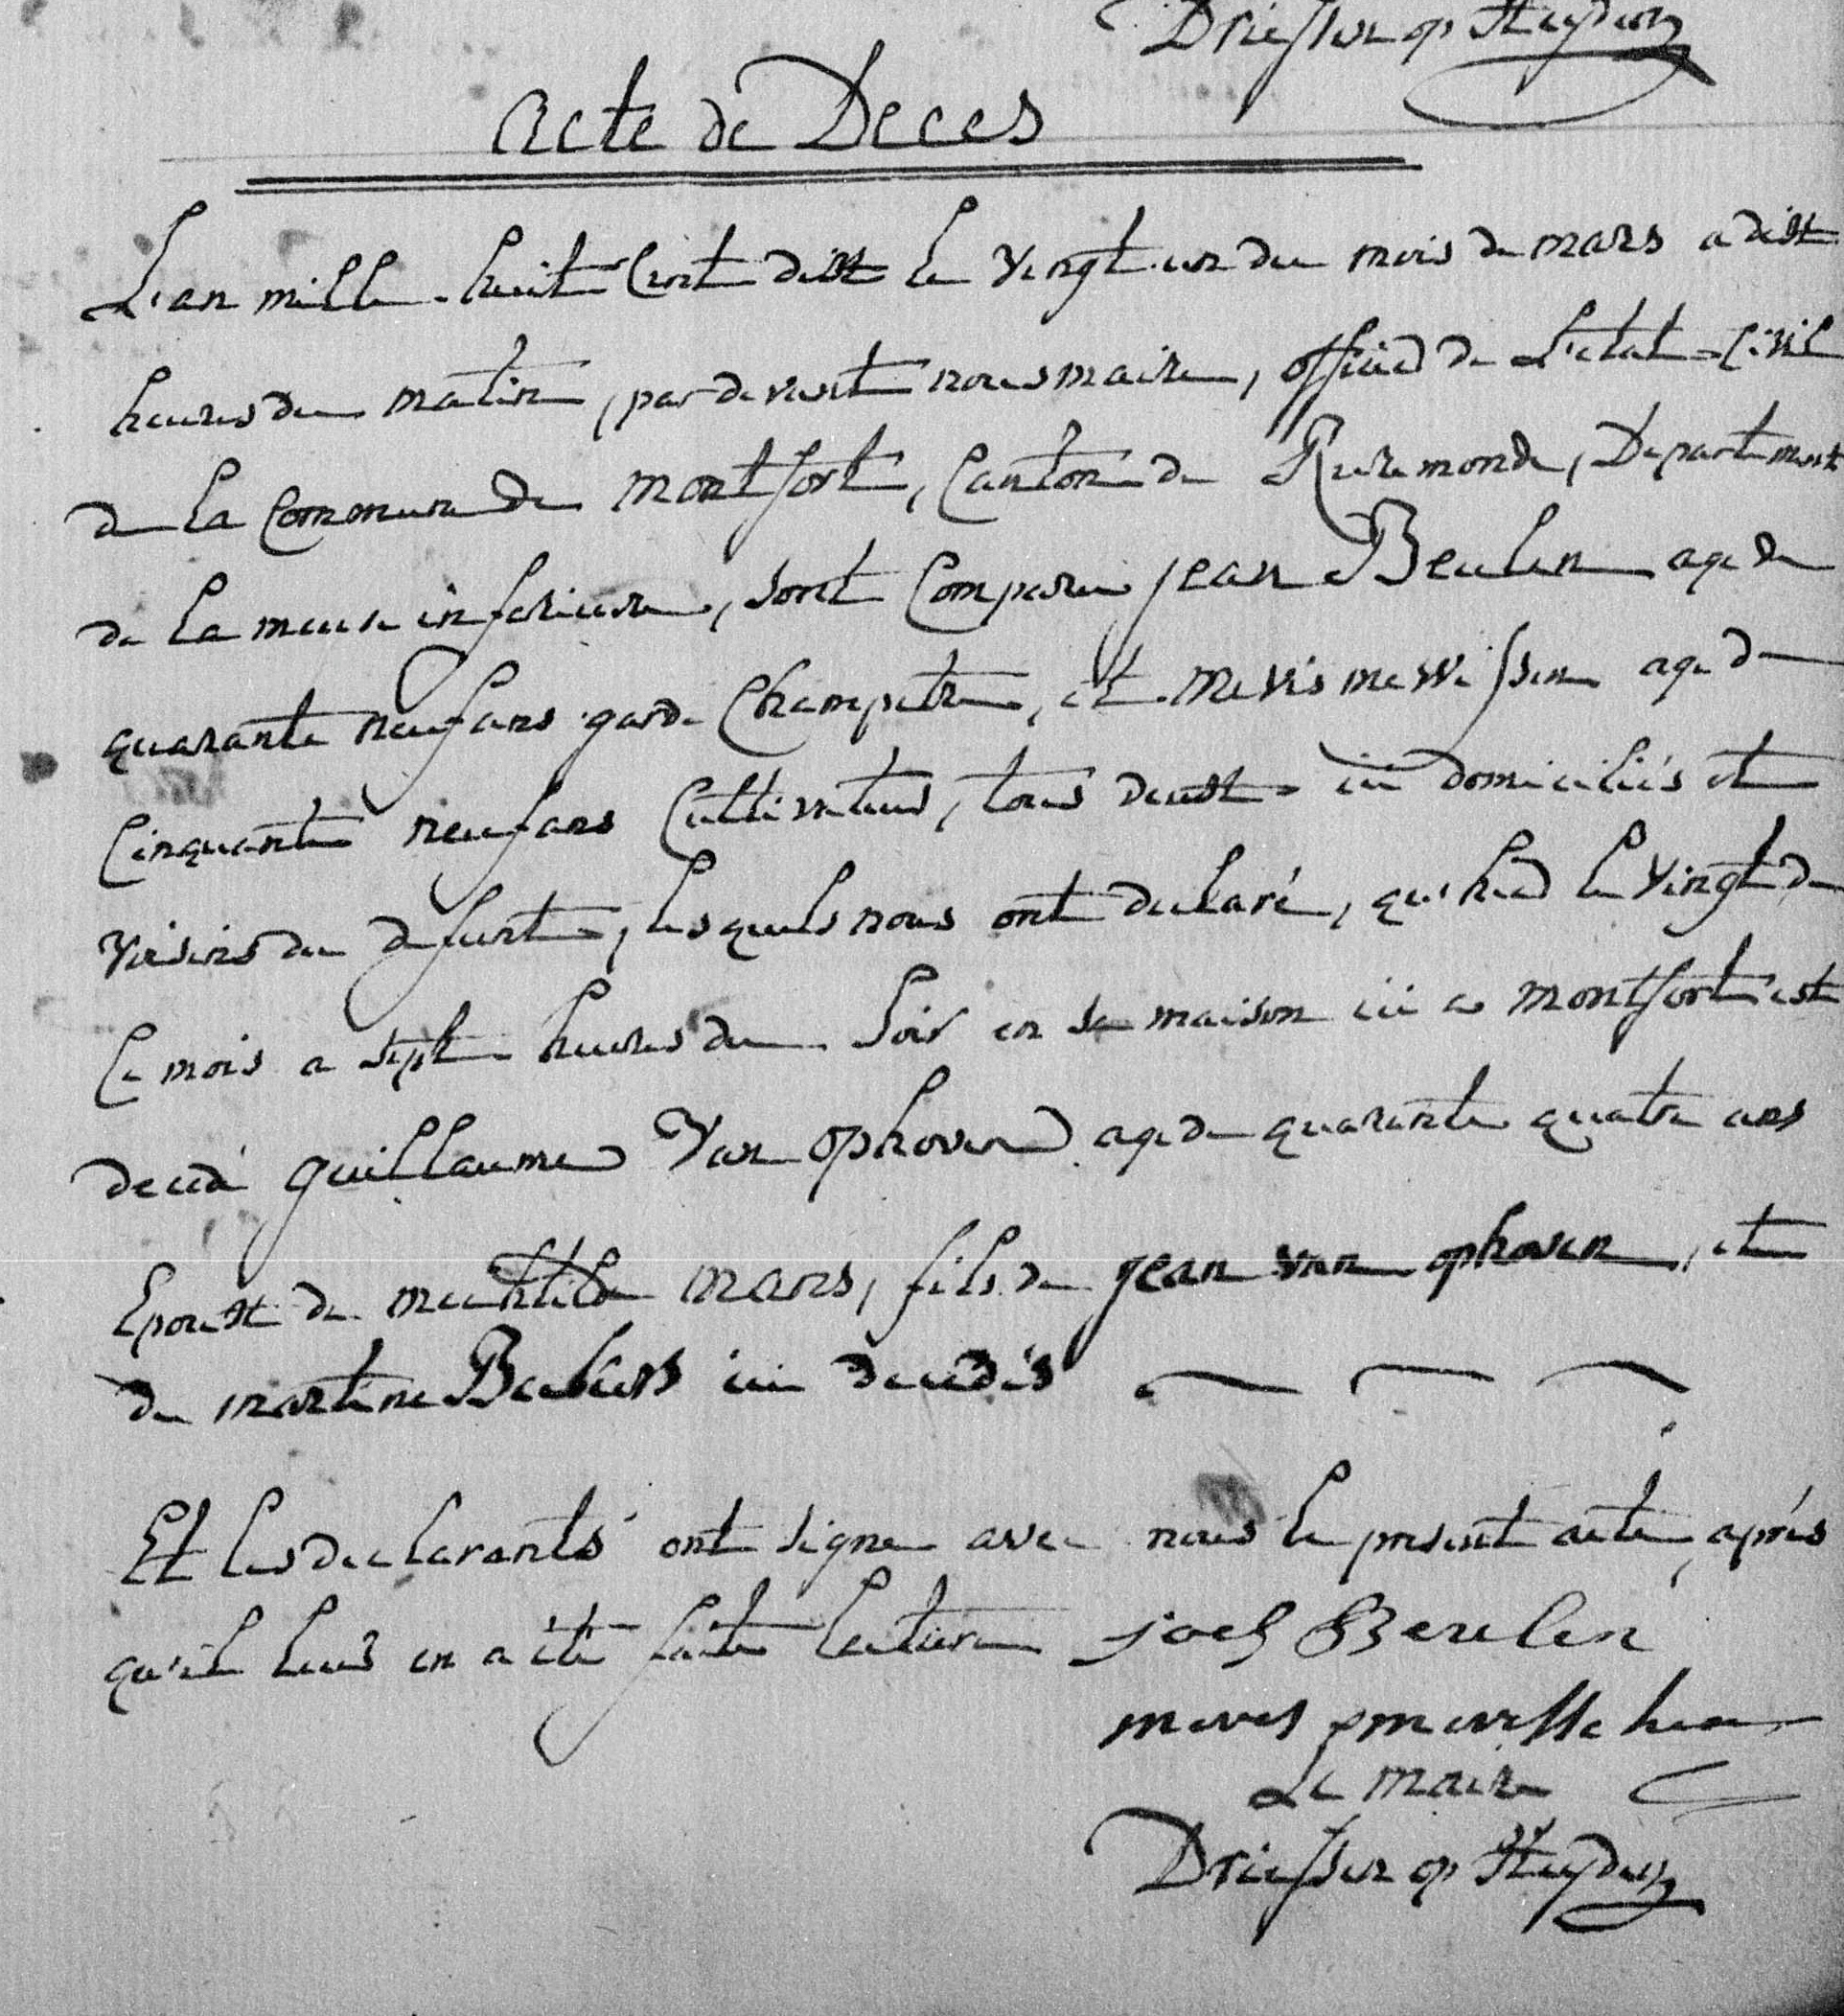 Driessen op Heyden
Acte de Deces
L'an mille huit Cent dix le vingt un du mois de mars a dix
heures du matin, par devant nous maire, officier de L'etat Civil
de La Commune de montfort, Canton de Ruremonde, Departement
de La meuse inferieure, sont Comparu jean Beulen age de
quarante neuf ans garde Champetre, et Mevis mewissen age de
Cinquante neuf ans Cultivateur, tous deux ici domiciliés et
voisins du defunt, lesquels nous ont declaré, que hier le vingt de
Ce mois a sept heures du Soir en sa maison ici a montfort est
decedé guillaume Van ophoven age de quarante quatre ans
Epoux de mechtilde mans, fils de jean van ophoven, et
de martine Beckers ici decedés
Et Les declarants ont signe avec nous le present acte, aprés
qu'il leur en a été faite lecture joes Beulen
meves mevissen
Le maire
Driessen op Heyden